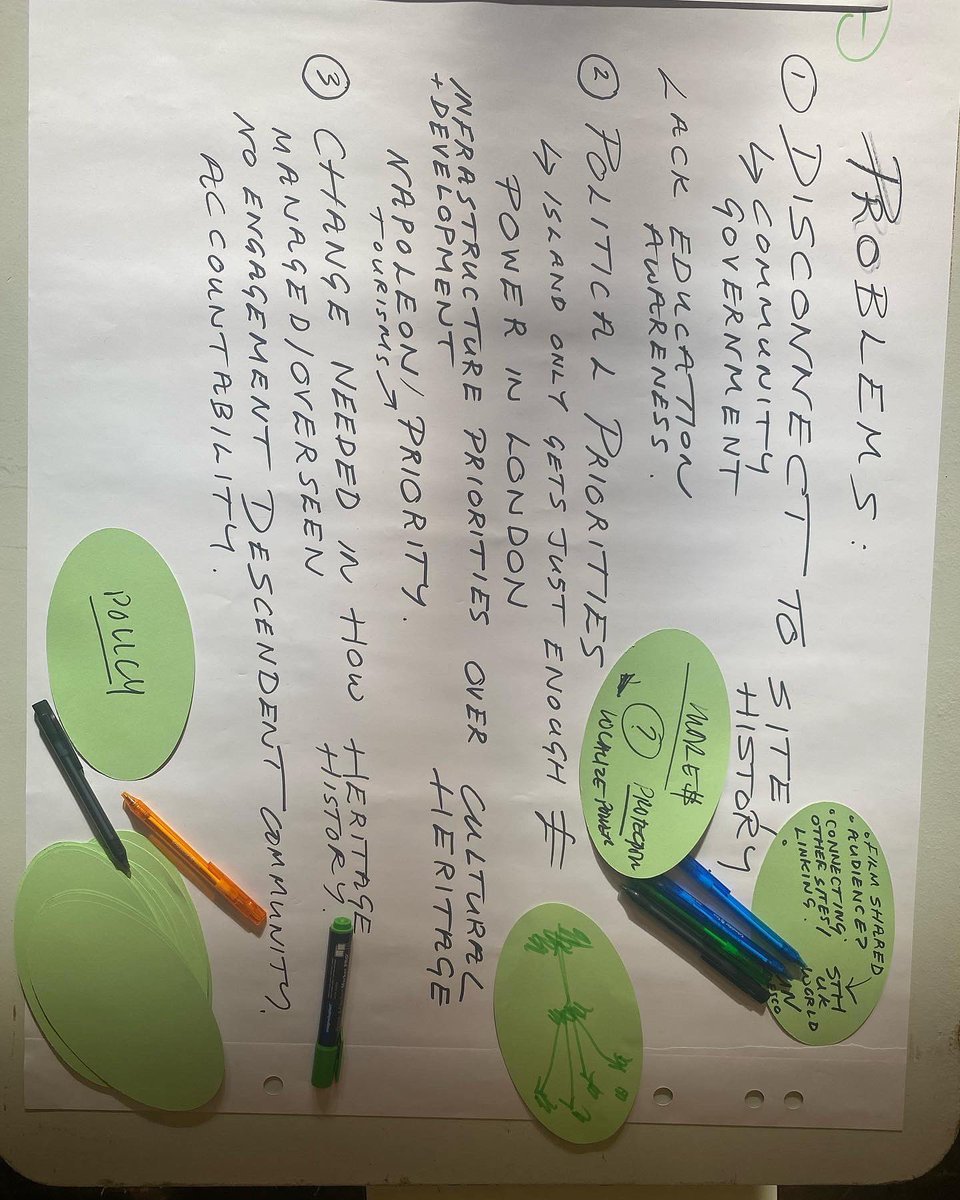 PROBLEMS:
① DISCONNECT TO SITE /
↳ COMMUNITY HISTORY
GOVERNMENT
LACK EDUCATION
AWARENESS.
② POLITICAL PRIORITIES
↳ ISLAND ONLY GETS JUST ENOUGH £
POWER IN LONDON
INFRASTRUCTURE PRIORITIES OVER CULTURAL
+ DEVELOPMENT HERITAGE
NAPOLEON/PRIORITY.
TOURISMS →
③ CHANGE NEEDED IN HOW HERITAGE
MANAGED/OVERSEEN HISTORY.
NO ENGAGEMENT DESCENDENT COMMUNITY.
ACCOUNTABILITY.
• FILM SHARED
• AUDIENCE? STH
• CONNECTING UK
OTHER SITES/ WORLD
LINKING.
MORE $
? PROTECTION
LOCALIZE POWER
POLICY